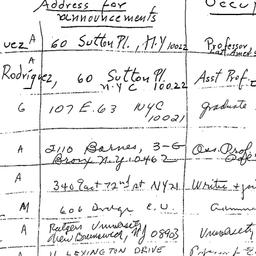 Address for
announcements
uez A 60 Sutton Pl., N.Y 10022 Professor,
Rodriguez, 60 Sutton Pl. Asst Prof.
N.Y.C 10022
G 107 E. 63 NYC graduate
10021
A 2110 Barnes, 3-G
Bronx N.Y. 10462
A 340 East 72nd st NY 21 Writer +
M 606 Dodge E.U.
A Rutgers University University
New Brunswick, NJ 08903
A LEXINGTON DRIVE